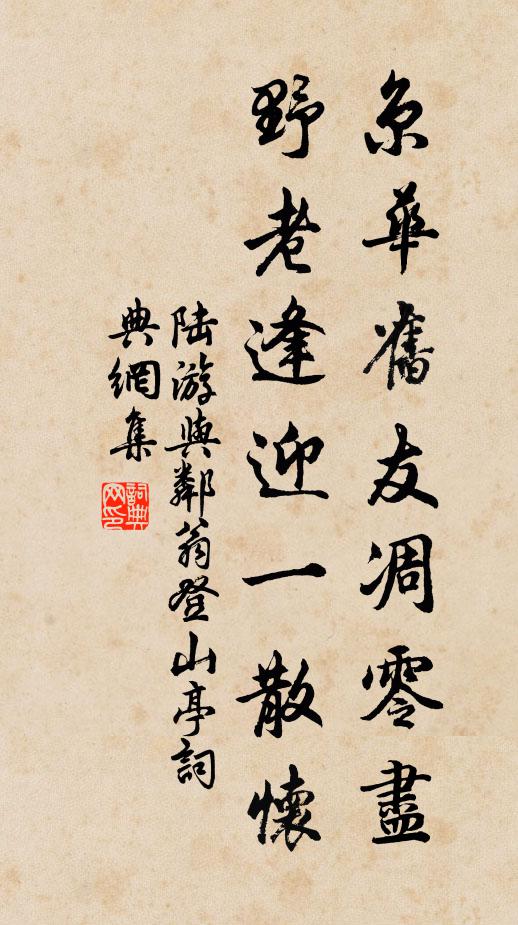 京華舊友凋零盡
野老逢迎一散懷
陸游與鄰翁登山亭詞
典網集
詞典
网印